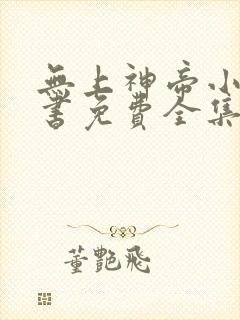 無上神帝小
書免費全集
董艷飛